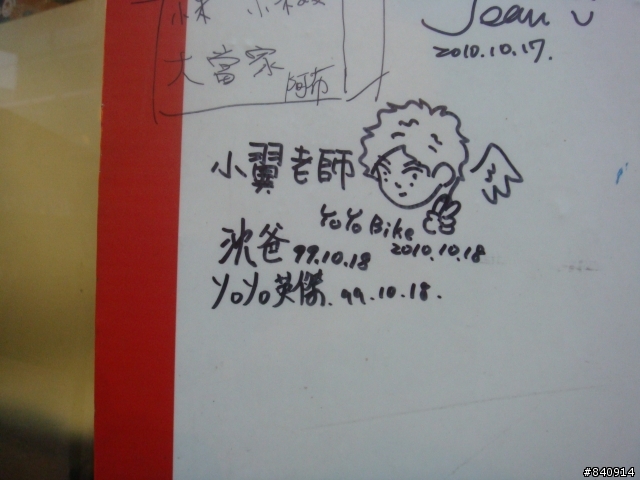 Jean
2010.10.17.
大當家 阿布
小翼老師
YoYo Bike
2010.10.18
沈爸 99.10.18
YoYo英傑. 99.10.18.
#840914